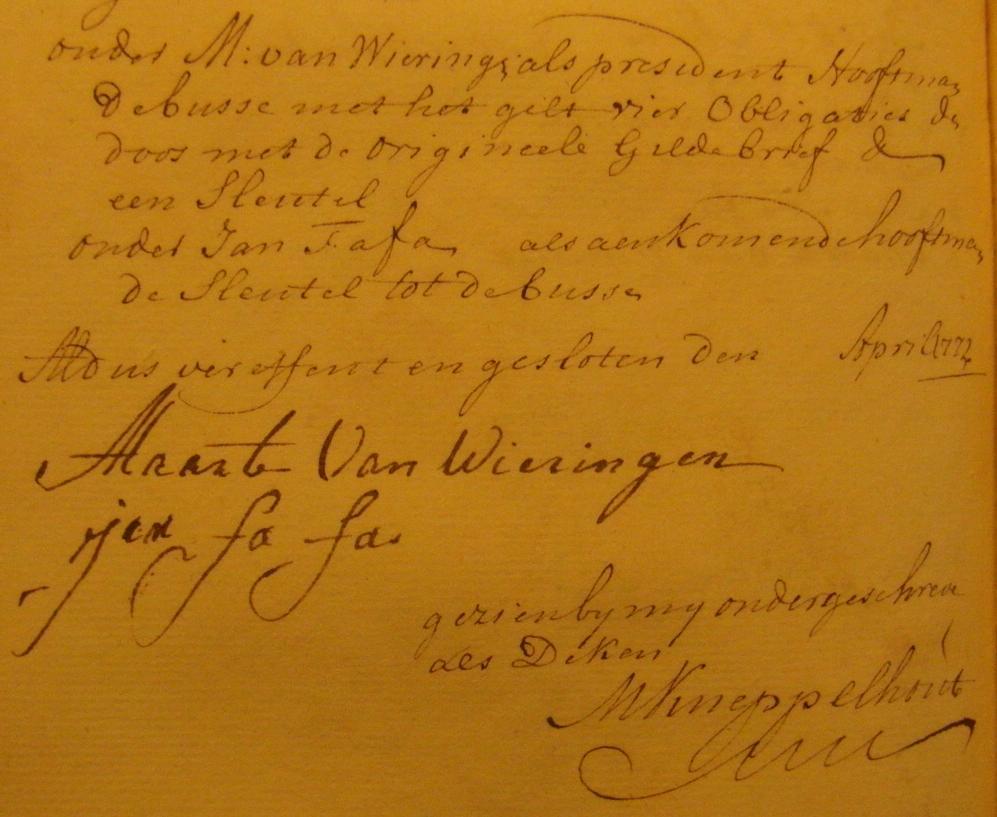 onder M: van Wieringe als president Hooftman
De busse met het gelt vier Obligaties de
doos met de origineele Gildebrief &
een Sleutel
onder Jan Fafa als aenkomende hooftman
de Sleutel tot de busse
Aldus vereffent en gesloten den April
Maarte Van Wieringen
jan fa fa
gezien by my ondergeschreve
als Deken
M Kneppelhout